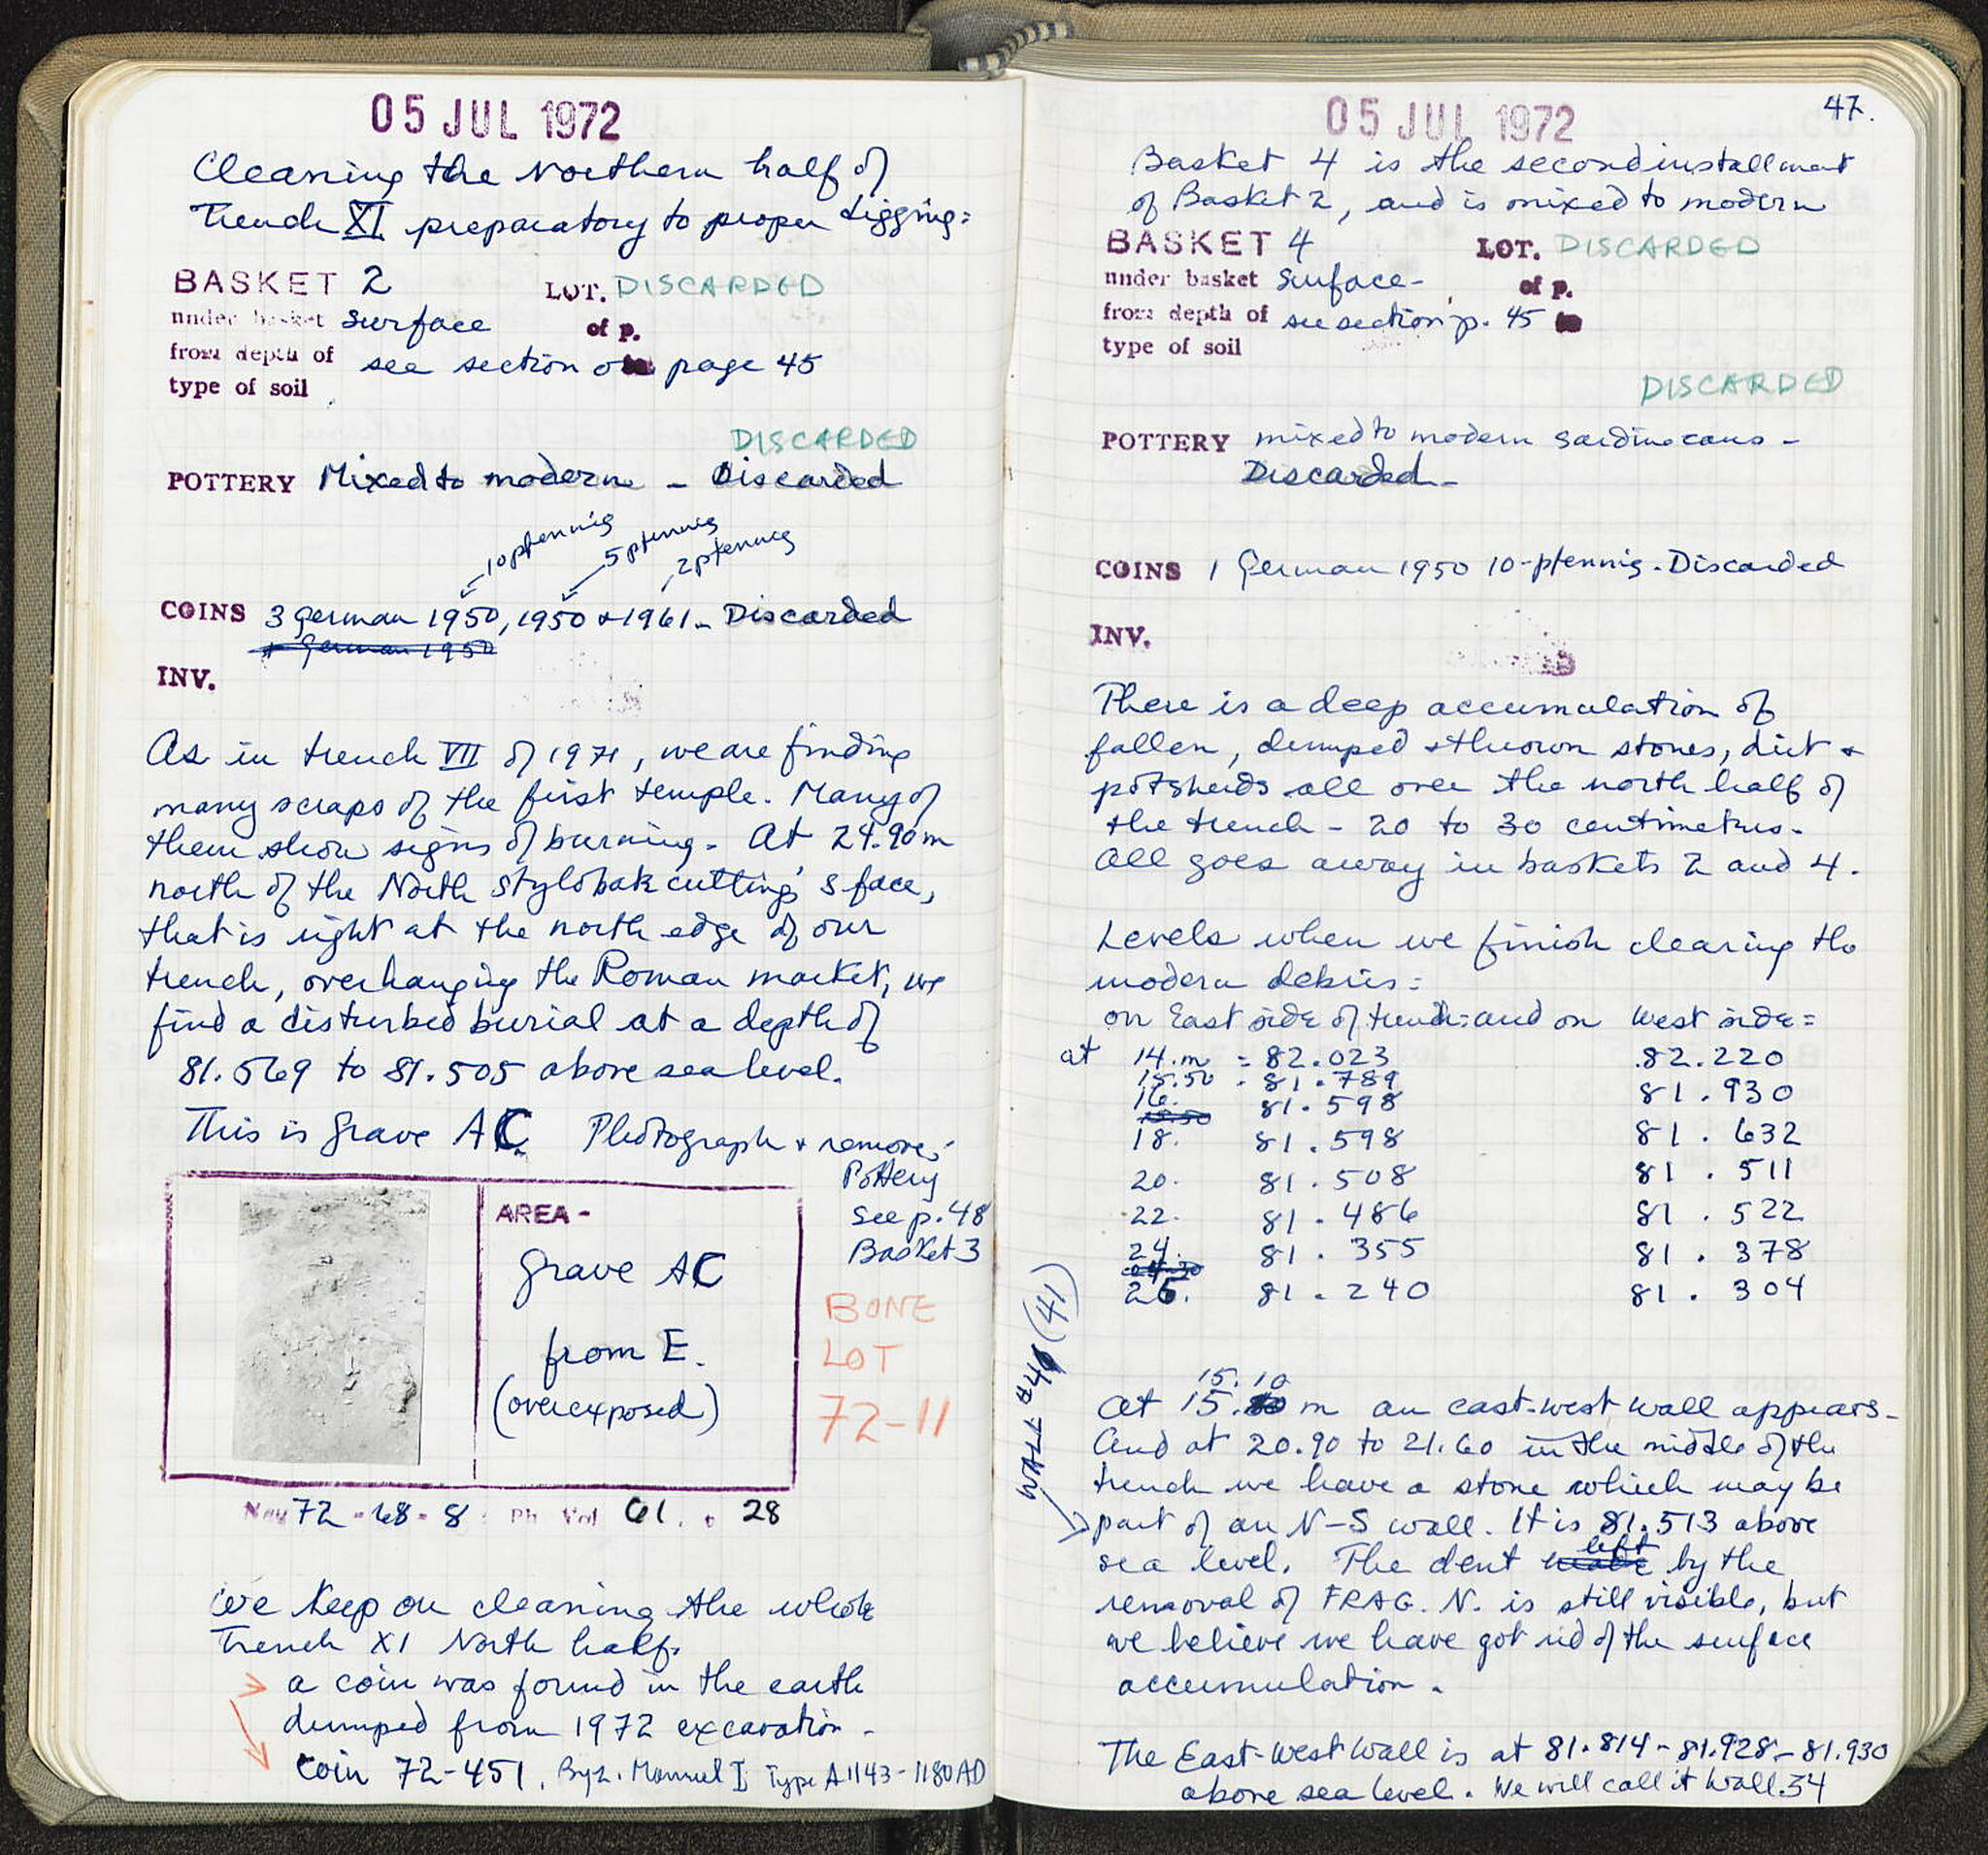 05 JUL 1972
Cleaning the Northern half of
Trench XI preparatory to proper digging:
BASKET 2 LOT. DISCARDED
under basket surface of p.
from depth of see section on page 45
type of soil
DISCARDED
POTTERY Mixed to modern - Discarded
10 pfennig 5 pfennig 2 pfennig
COINS 3 German 1950, 1950 + 1961 - Discarded
German 1950
INV.
As in trench VII of 1971, we are finding
many scraps of the first temple. Many of
them show signs of burning. At 24.90 m
north of the North stylobate cutting's face,
that is right at the north edge of our
trench, overhanging the Roman market, we
find a disturbed burial at a depth of
81.569 to 81.505 above sea level.
This is Grave AC. Photograph + remove.
Pottery
see p. 48
Basket 3
AREA -
Grave AC
from E.
(overexposed)
BONE
LOT
72-11
Neg 72-68-8 : Ph Vol 61. p 28
We keep on cleaning the whole
Trench XI North half.
a coin was found in the earth
dumped from 1972 excavation -
Coin 72-451, Byz. Manuel I Type A 1143-1180 AD
47.
05 JUL 1972
Basket 4 is the second installment
of Basket 2, and is mixed to modern
BASKET 4 LOT. DISCARDED
under basket surface - of p.
from depth of see section p. 45
type of soil
DISCARDED
POTTERY mixed to modern sardine cans -
Discarded -
COINS 1 German 1950 10-pfennig. Discarded
INV.
There is a deep accumulation of
fallen, dumped + thrown stones, dirt +
potsherds all over the north half of
the trench - 20 to 30 centimetres.
All goes away in baskets 2 and 4.
Levels when we finish clearing the
modern debris:
on East side of trench: and on West side:
at 14.m = 82.023 82.220
15.50 - 81.789 81.930
16. 81.598
18. 81.598 81.632
20. 81.508 81.511
22. 81.486 81.522
24. 81.355 81.378
26. 81.240 81.304
WALL #41 (41)
15.10
at 15. m an east-west wall appears -
And at 20.90 to 21.60 in the middle of the
trench we have a stone which may be
part of an N-S wall. It is 81.513 above
sea level. The dent made left by the
removal of FRAG. N. is still visible, but
we believe we have got rid of the surface
accumulation.
The East-West wall is at 81.814 - 81.928 - 81.930
above sea level. We will call it Wall 34